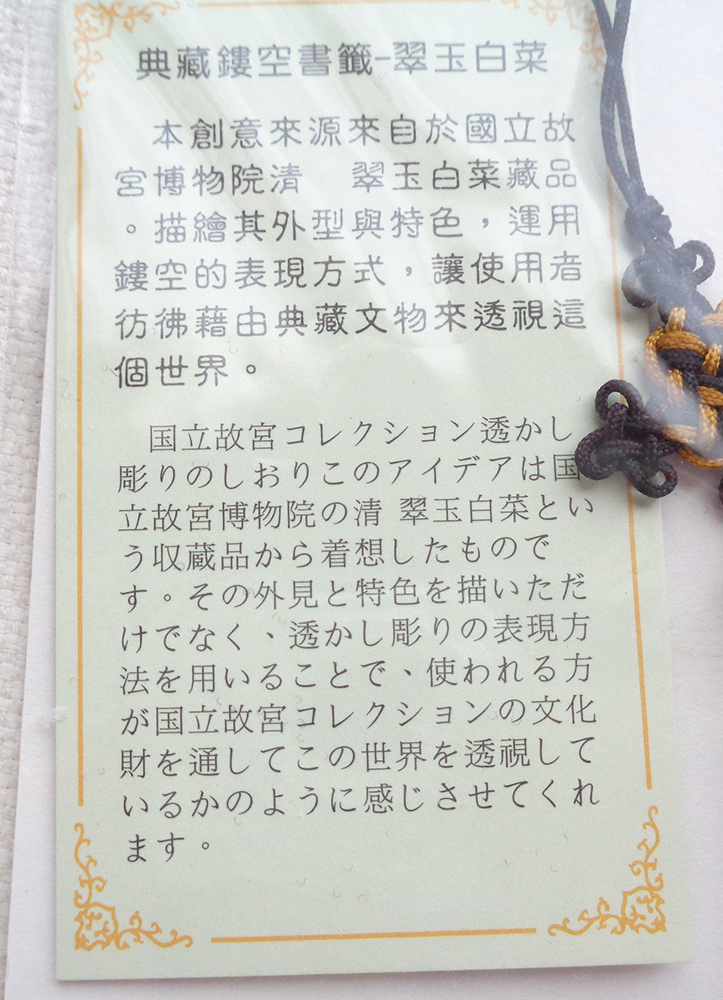 典藏鏤空書籤-翠玉白菜
本創意來源來自於國立故
宮博物院清　翠玉白菜藏品
。描繪其外型與特色，運用
鏤空的表現方式，讓使用者
彷彿藉由典藏文物來透視這
個世界。
国立故宮コレクション透かし
彫りのしおりこのアイデアは国
立故宮博物院の清 翠玉白菜とい
う収蔵品から着想したもので
す。その外見と特色を描いただ
けでなく、透かし彫りの表現方
法を用いることで、使われる方
が国立故宮コレクションの文化
財を通してこの世界を透視して
いるかのように感じさせてくれ
ます。